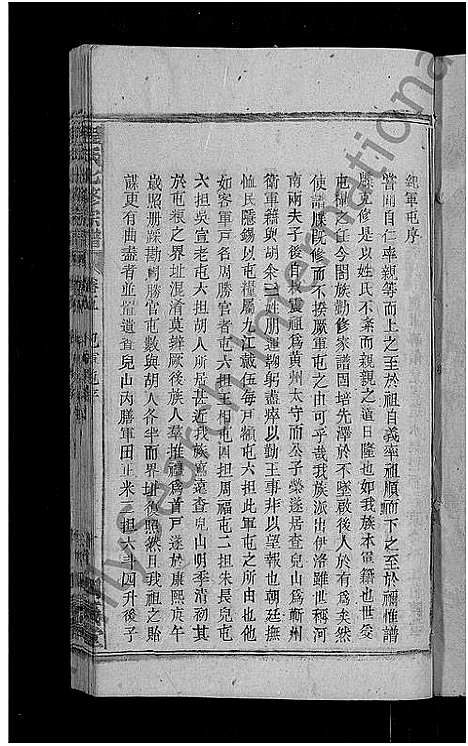 紀軍屯序
嘗聞自仁率親等而上之至於祖自義率祖順而下之至於禰惟譜
牒克修是以姓氏不紊而親親之道日隆也如我族本軍籍也世受
屯糧之任今閤族勤修家譜固培先澤於不墜啟後人於有為矣然
使譜牒既修而不揆厥軍屯之由可乎哉我族派出伊洛雖世稱河
南兩夫子後裔永震祖為黃州太守而公子榮遂居查兒山為蘄州
衛軍籍與胡余二姓朋運鞠躬盡瘁以勤王事非以望報也朝廷撫
恤民隱錫以屯糧屬九江戴伍每戶額屯六担此軍屯之所由也他
如客軍戶名周勝官者屯六担王相屯四担周福屯二担朱長兒屯
六担吳宣老屯大担胡人所居甚近我族窵遠查兒山明季清初其
於屯粮之界址混淆莫辨厥後族人舉推禮為首戶遂於康熙庚午
歲照冊踩勘周勝官屯數與胡人各半而界址復照然目我祖之貽
謀更有曲盡者並置遺查兒山內膳軍田正米三担六斗四升後子
程氏七修宗譜
卷五
紀軍屯序